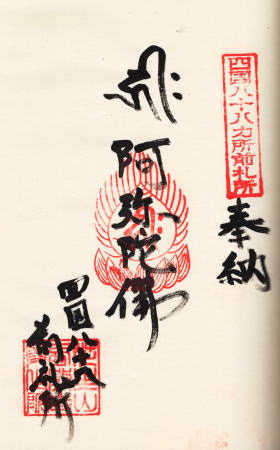 四国八十八カ所前札所
奉納
阿弥陀佛
四国八十八
前札所